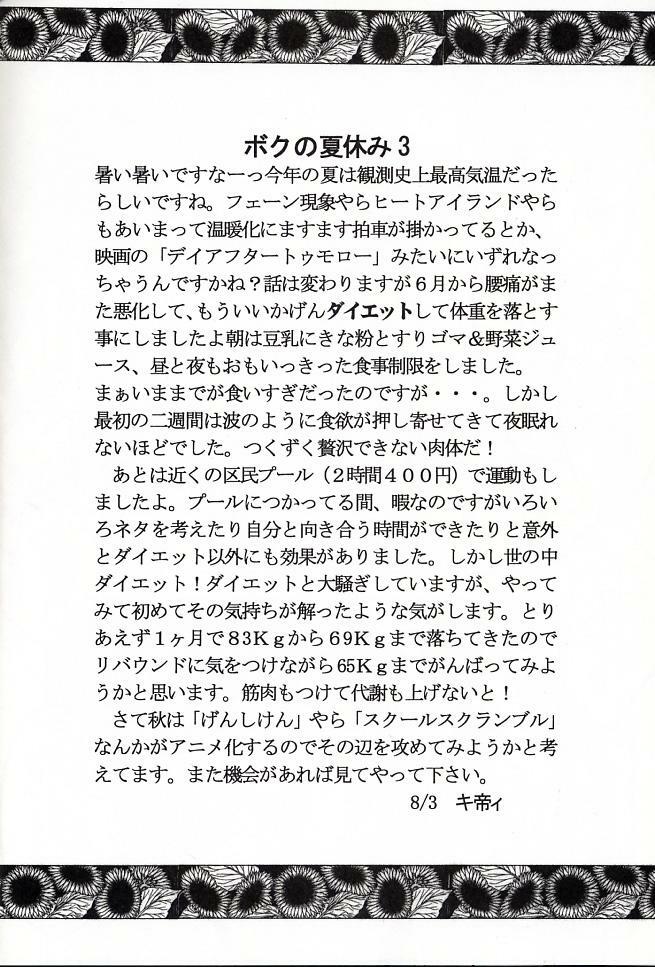 ボクの夏休み3
暑い暑いですなーっ今年の夏は観測史上最高気温だった
らしいですね。フェーン現象やらヒートアイランドやら
もあいまって温暖化にますます拍車が掛かってるとか、
映画の「デイアフタートゥモロー」みたいにいずれなっ
ちゃうんですかね？話は変わりますが６月から腰痛がま
た悪化して、もういいかげんダイエットして体重を落とす
事にしましたよ朝は豆乳にきな粉とすりゴマ＆野菜ジュ
ース、昼と夜もおもいっきった食事制限をしました。
まぁいままでが食いすぎだったのですが・・・。しかし
最初の二週間は波のように食欲が押し寄せてきて夜眠れ
ないほどでした。つくずく贅沢できない肉体だ！
　あとは近くの区民プール（２時間４００円）で運動もし
ましたよ。プールにつかってる間、暇なのですがいろい
ろネタを考えたり自分と向き合う時間ができたりと意外
とダイエット以外にも効果がありました。しかし世の中
ダイエット！ダイエットと大騒ぎしていますが、やって
みて初めてその気持ちが解ったような気がします。とり
あえず１ヶ月で８３Ｋｇから６９Ｋｇまで落ちてきたので
リバウンドに気をつけながら65Ｋｇまでがんばってみよ
うかと思います。筋肉もつけて代謝も上げないと！
　さて秋は「げんしけん」やら「スクールスクランブル」
なんかがアニメ化するのでその辺を攻めてみようかと考
えてます。また機会があれば見てやって下さい。
8/3　キ帝ィ